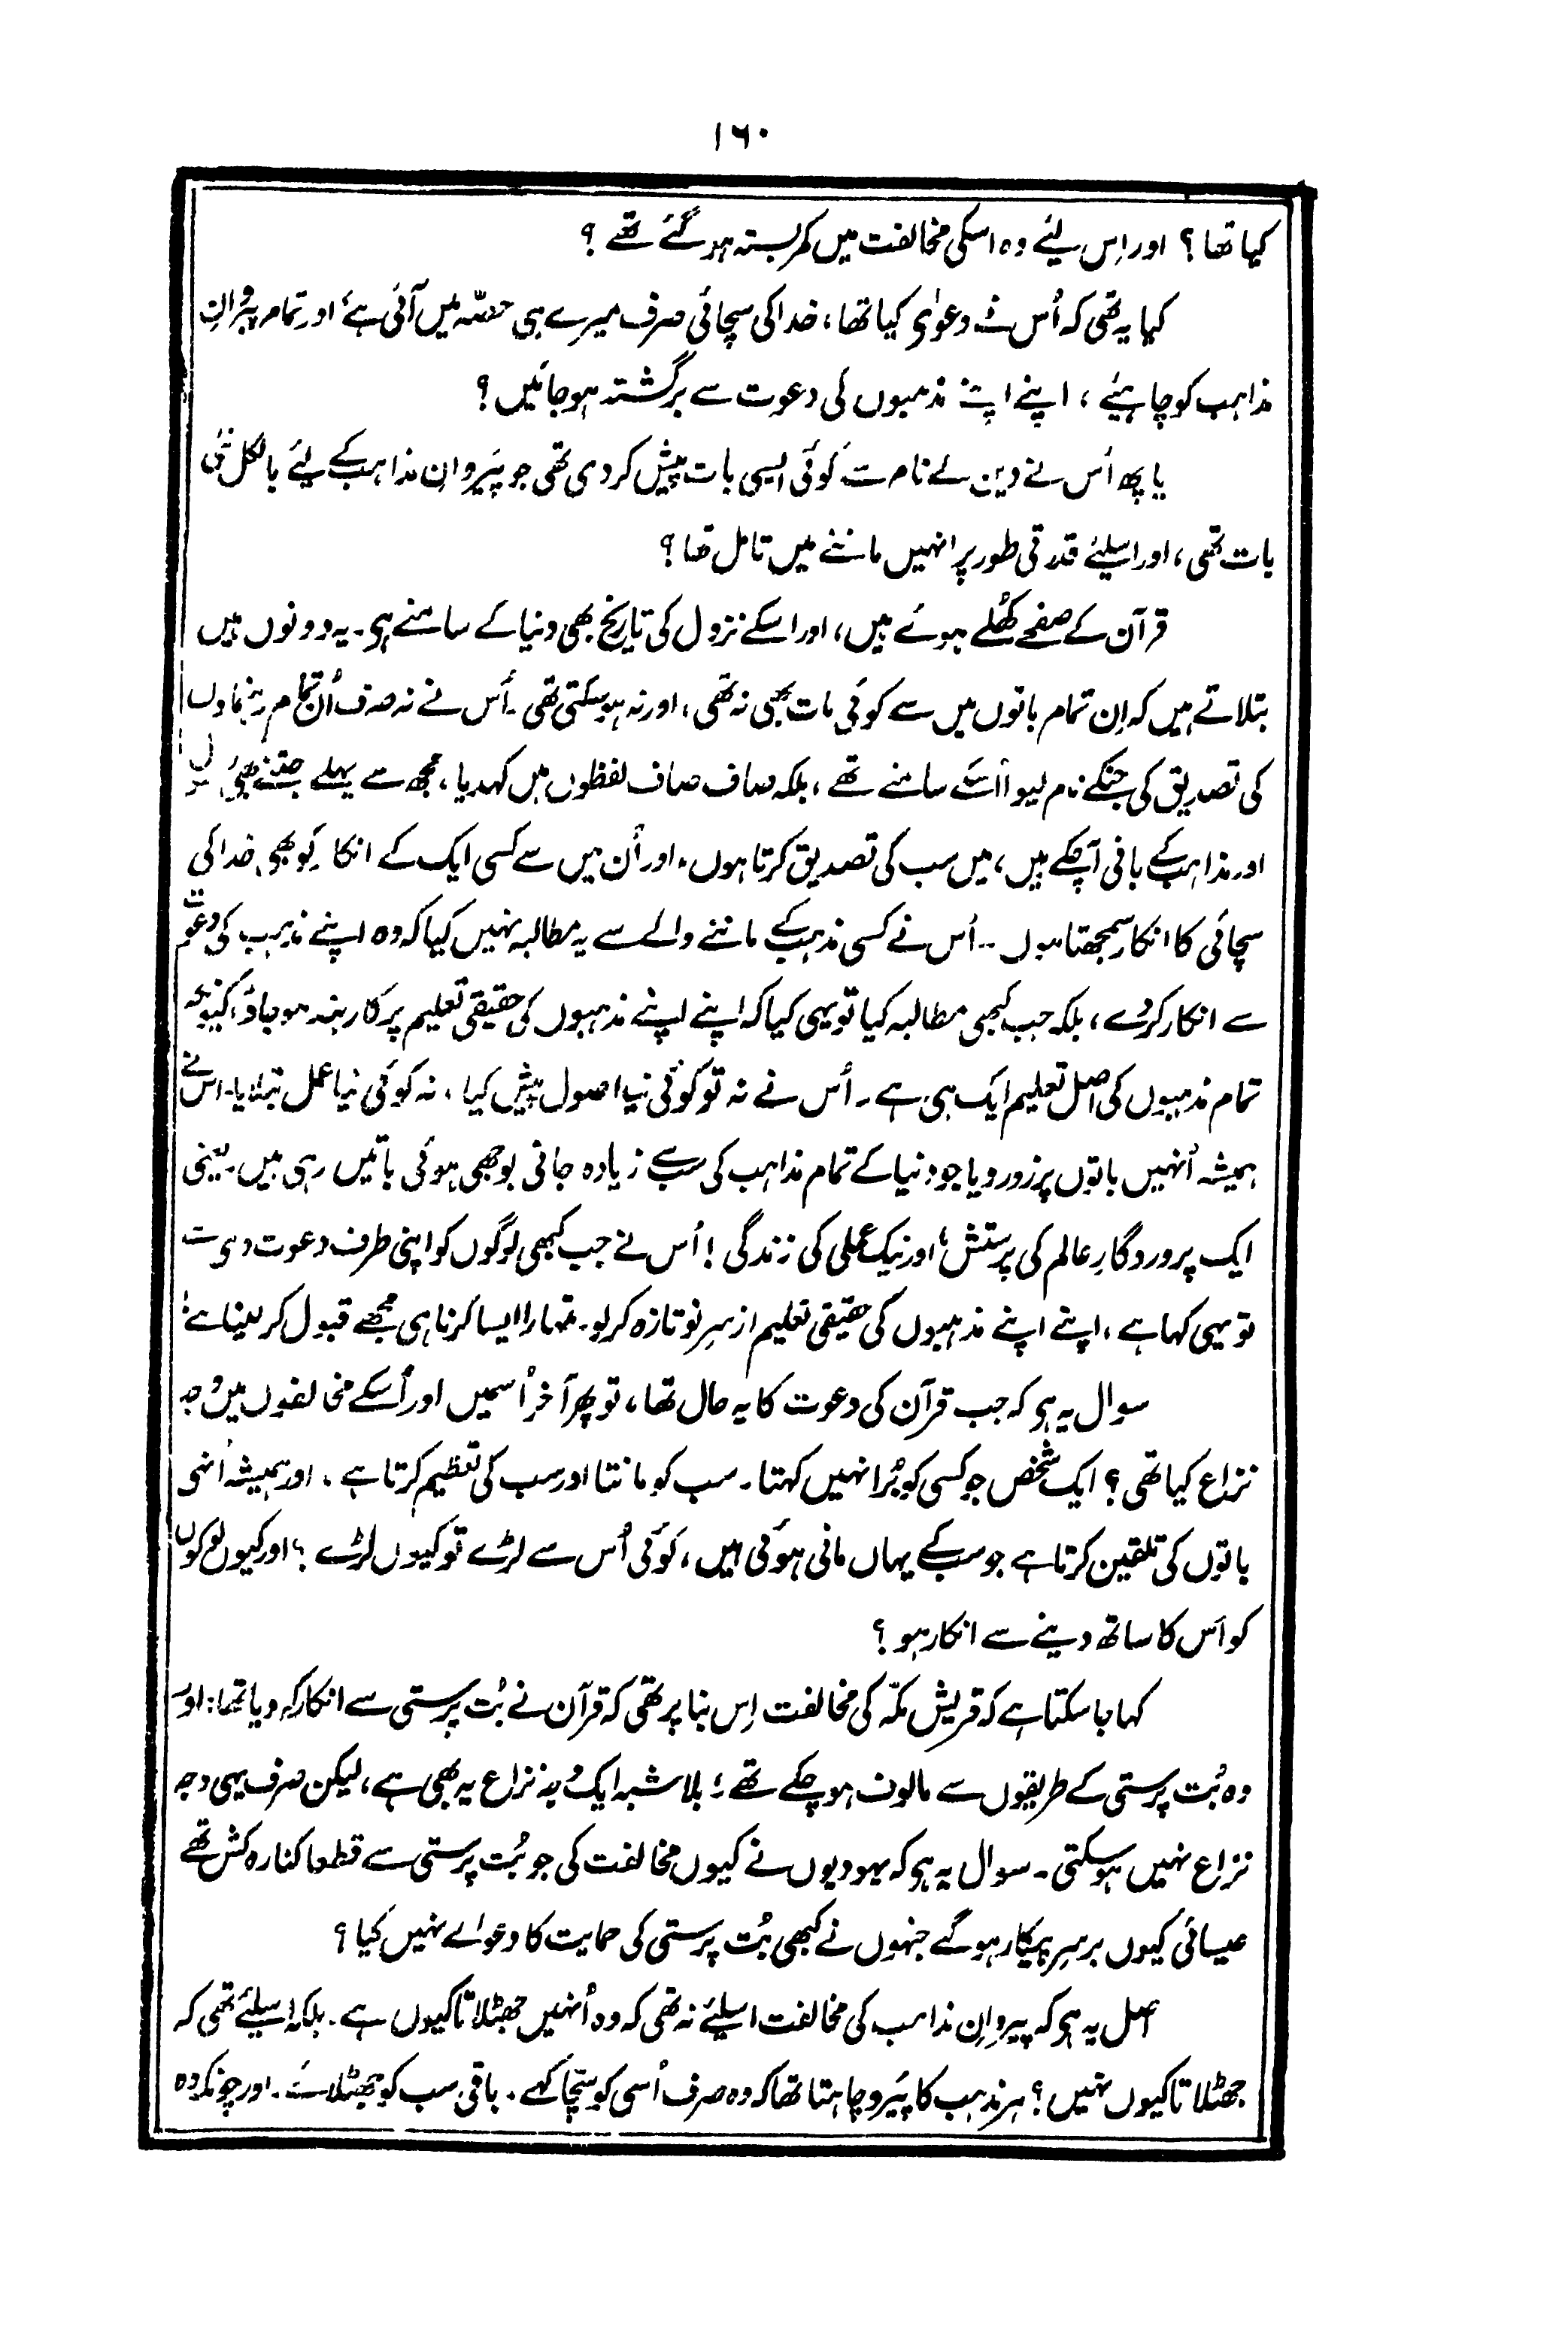 ۱۶۰
کیا تھا؟ اور اِس لیئے وہ اسکی مخالفت میں کمربستہ ہوگئے تھے؟
کیا یہ تھی کہ اُس نے دعوٰی کیا تھا، خدا کی سچائی صرف میرے ہی حصّہ میں آئی ہے اور تمام پیروانِ
مذاہب کو چاہیئے، اپنے اپنے مذہبوں کی دعوت سے برگشتہ ہوجائیں؟
یا پھر اُس نے دین کے نام سے کوئی ایسی بات پیش کردی تھی جو پیَروانِ مذاہب کے لیئے بالکل نئی
بات تھی، اور اسلیئے قدرتی طور پر انہیں ماننے میں تامل تھا؟
قرآن کے صفحے کھُلے ہوئے ہیں، اور اسکے نزول کی تاریخ بھی دنیا کے سامنے ہی۔ یہ دونوں ہمیں
بتلاتے ہیں کہ اِن تمام باتوں میں سے کوئی بات بھی نہ تھی، اور نہ ہوسکتی تھی۔ اُس نے نہ صرف اُن تمام رہنماؤں
کی تصدیق کی جنکے نام لیوا اُسکے سامنے تھے، بلکہ صاف صاف لفظوں میں کہدیا، مجھ سے پہلے جتنے بھی رسول
اور مذاہب کے بانی آچکے ہیں، میں سب کی تصدیق کرتا ہوں، اور اُن میں سے کسی ایک کے انکار کو بھی خدا کی
سچائی کا انکار سمجھتا ہوں۔۔ اُس نے کسی مذہب کے ماننے والے سے یہ مطالبہ نہیں کیا کہ وہ اپنے مذہب کی دعوت
سے انکار کردے، بلکہ جب کبھی مطالبہ کیا تو یہی کیا کہ اپنے اپنے مذہبوں کی حقیقی تعلیم پر کاربند ہوجاؤ، کیونکہ
تمام مذہبوں کی اصل تعلیم ایک ہی ہے۔ اُس نے نہ تو کوئی نیا اصول پیش کیا، نہ کوئی نیا عمل بتلایا۔ اس نے
ہمیشہ اُنہیں باتوں پر زور دیا جو دنیا کے تمام مذاہب کی سب سے زیادہ جانی بوجھی ہوئی باتیں رہی ہیں۔ یعنی
ایک پروردگارِ عالم کی پرستش، اور نیک عملی کی زندگی! اُس نے جب کبھی لوگوں کو اپنی طرف دعوت دی ہے
تو یہی کہا ہے، اپنے اپنے مذہبوں کی حقیقی تعلیم ازسرِنو تازہ کرلو۔ تمہارا ایسا کرنا ہی مجھے قبول کرلینا ہے
سوال یہ ہی کہ جب قرآن کی دعوت کا یہ حال تھا، تو پھر آخر اُسمیں اور اُسکے مخالفوں میں وجہ
نزاع کیا تھی؟ ایک شخص جو کسی کو بُرا نہیں کہتا۔ سب کو مانتا اور سب کی تعظیم کرتا ہے، اور ہمیشہ اُنہی
باتوں کی تلقین کرتا ہے جو سب کے یہاں مانی ہوئی ہیں، کوئی اُس سے لڑے تو کیوں لڑے؟ اور کیوں لوگوں
کو اُس کا ساتھ دینے سے انکار ہو؟
کہا جاسکتا ہے کہ قریشِ مکّہ کی مخالفت اِس بنا پر تھی کہ قرآن نے بُت پرستی سے انکار کردیا تھا، اور
وہ بُت پرستی کے طریقوں سے مالوف ہوچکے تھے؛ بلاشبہ ایک وجہ نزاع یہ بھی ہے، لیکن صرف یہی وجہ
نزاع نہیں ہوسکتی۔ سوال یہ ہی کہ یہودیوں نے کیوں مخالفت کی جو بُت پرستی سے قطعا کنارہ کش تھے
عیسائی کیوں برسرِپیکار ہوگے جنہوں نے کبھی بُت پرستی کی حمایت کا دعوائے نہیں کیا؟
اصل یہ ہی کہ پیروانِ مذاہب کی مخالفت اسلیئے نہ تھی کہ وہ اُنہیں جھٹلاتا کیوں ہے۔ بلکہ اسلیئے تھی کہ
جھٹلاتا کیوں نہیں؟ ہر مذہب کا پیَرو چاہتا تھا کہ وہ صرف اُسی کو سچّا کہے۔ باقی سب کو جھٹلائے۔ اور چونکہ وہ